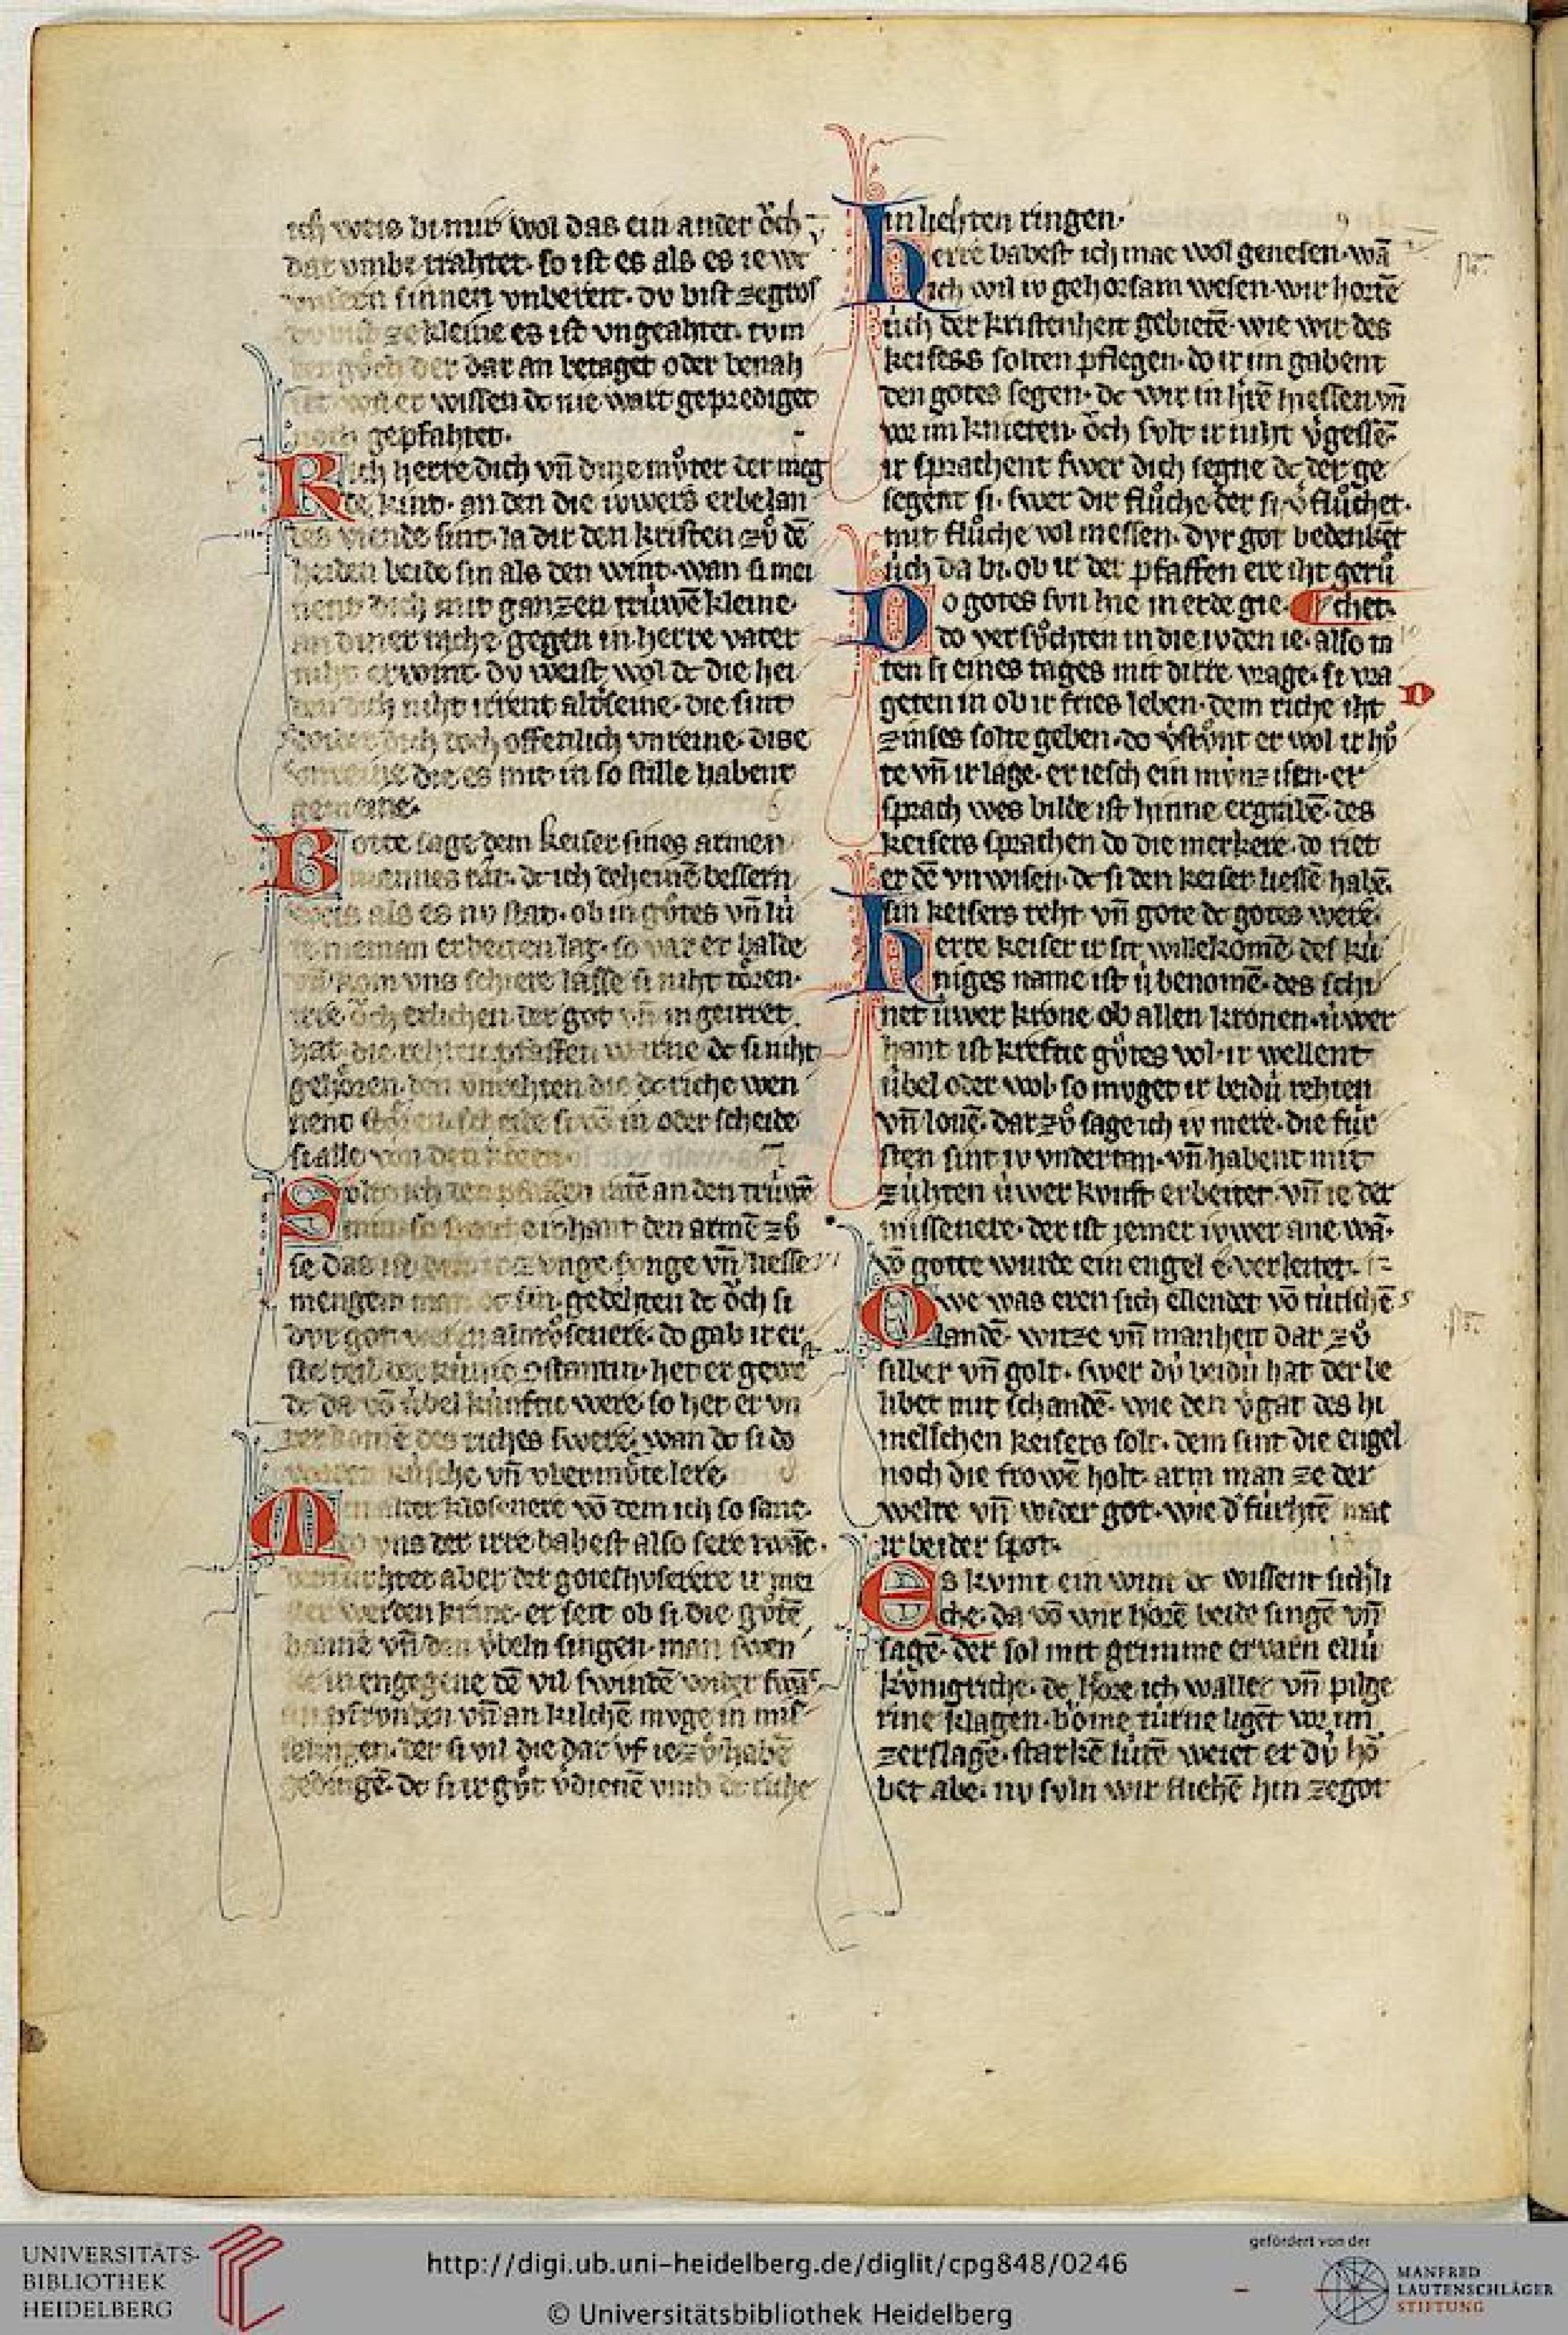 ich weis bi mir wol das ein ander och
dar vmbe trahtet· so ist es als es ie we
vnsern sinnen vnbereit· dv bist ze gros
dv bist ze kleine es ist vngeahtet· tvm
der dar an betaget oder benah
wissen dc nie wart geprediget
noch gepfahtet·
Rich herre dich vn̄ dine mvͦter der meg
de kint· an den die iwers erbelan
des viende sint· la dir den kristen zvͦ dē
heiden beide sin als den wint· wan si mei
nent dich mit ganzen trúwē kleine·
an diner rache gegen in herre vater
niht erwint· dv weist wol dc die hei
den dich niht irrent alterseine· die sint
wider dich doch offenlich vnreine· dise
vnreine die es mit in so stille habent
gemeine·
Botte sage dem keiser sines armen
mannes rat· dc ich deheinē bessern
weis als es nv stat· ob in gvͦtes vn̄ lú
te nieman erbeiten lat· so var er balde
vn̄ kom vns schiere lasse si niht tören·
irre och etlichen der got vn̄ in geirret
hat· die rehten pfaffen warne dc si niht
gehören· den vnrehten die dc riche wen
nent stören· scheide si vō in oder scheide
si alle von den kören·
Solte ich den pfaffen ratē an den trúwē
min· so spreche ir hant den armē zvͦ
se das ist din ir zvnge svnge vn̄ liesse
mengem man dc sin· gedehten dc och si
dvr got waren almvͦsenere· do gab ir er
ste teil der kúnic ostantin· het er gewest
dc da vō úbel kúnftic were· so het er vn
derkomē des riches swere· wan dc si do
waren kúsche vn̄ vbermvͤte lere·
Min alter klosenere vō dem ich so sanc·
do vns der irre babest also sere twāc·
der fúrhtet aber der goteshvsere ir mei
ster werden kranc· er seit ob si die gvͦtē
bannē vn̄ den v́beln singen· man swen
ke in engegene dē vil swindē wider swāc
an pfrvnden vn̄ an kilchē mvge in mis
selingen· der si vil die dar vf iezvͦ habē
gedingē· dc si ir gvͦt v̓dienē vmb dc riche
in liehten ringen·
Herre babest ich mac wol genesen· wā
ich wil iv gehorsam wesen· wir hortē
úch der kristenheit gebietē· wie wir des
keisers solten pflegen· do ir im gabent
den gotes segen· dc wir in hrē hiessen vn̄
vor im knieten· och svlt ir niht v̓gessē·
ir sprachent swer dich segne dc der ge
segent si· swer dir flvͦche der si v̓flvͦchet·
mit flvͦche volmessen· dvr got bedenkēt
úch da bi· ob ir der pfaffen ere iht gerv́
Do gotes svn hie in erde gie· chet·
do versvͦchten in die ivden ie· also ta
ten si eines tages mit dirre vrage· si vra
geten in ob ir fries leben· dem riche iht
zinses solte geben· do v̓stvͦnt er wol ir hvͦ
te vn̄ ir lage· er iesch ein mvnzisen· er
sprach wes bilde ist hinne ergrabē· des
keisers sprachen do die merkere· do riet
er dē vnwisen· dc si den keiser liessē habē·
sin keisers reht vn̄ gote dc gotes were·
Herre keiser ir sit willekomē· des kú
niges name ist ú benomē· des schi
net úwer krone ob allen kronen· úwer
hant ist kreftic gvͦtes vol· ir wellent
úbel oder wol· so mvget ir beidú rehten
vn̄ lonē· dar zvͦ sage ich iv mere· die fúr
sten sint iv vndertan· vn̄ habent mit
zúhten úwer kvnft erbeitet· vn̄ ie der
missenere· der ist iemer ivwer ane wā·
vō gotte wurde ein engel e verleitet·
Owe was eren sich ellendet vō tútschē
landē· witze vn̄ manheit dar zvͦ
silber vn̄ golt· swer dv́ beidú hat der be
libet mit schandē· wie den v̓gat des hi
melschen keisers solt· dem sint die engel
noch die frowē holt· arm man ze der
welte vn̄ wider got· wie d̓ fúrhtē mac
ir beider spot·
Es kvmt ein wint dc wissent sicherli
che· da vō wir hörē beide singē vn̄
sagē· der sol mit grimme ervarn ellú
kúnigriche· dc höre ich waller vn̄ pilge
rine klagen· böime túrne liget vor im
zerslagē· starkē lútē weiet er dv́ hö
bet abe· nv svln wir fliehē hin ze got
UNIVERSITÄTS-
BIBLIOTHEK
HEIDELBERG
http://digi.ub.uni-heidelberg.de/diglit/cpg848/0246
© Universitätsbibliothek Heidelberg
gefördert von der
MANFRED
LAUTENSCHLÄGER
STIFTUNG